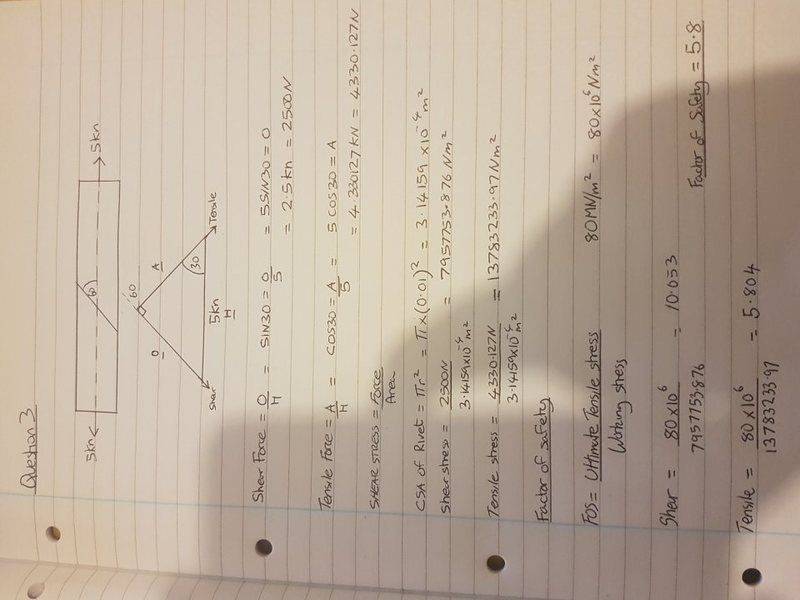 Question 3
5kn
5kn
60
60
O
A
30
Shear
5kn
H
Tensile
Shear Force = O/H = SIN30 = O/5 = 5SIN30 = O
= 2.5kn = 2500N
Tensile Force = A/H = COS30 = A/5 = 5COS30 = A
= 4.330127KN = 4330.127N
SHEAR STRESS = Force/Area
CSA of Rivet = πr² = π×(0.01)² = 3.14159 ×10⁻⁴m²
Shear stress = 2500N/3.14159×10⁻⁴m² = 7957753.876 Nm²
Tensile stress = 4330.127N/3.14159×10⁻⁴m² = 13783233.97Nm²
Factor of safety
FOS = Ultimate Tensile stress/Working stress 80MN/m² = 80×10⁶Nm²
Shear = 80×10⁶/7957753.876 = 10.053
Factor of Safety = 5.8
Tensile = 80×10⁶/13783233.97 = 5.804